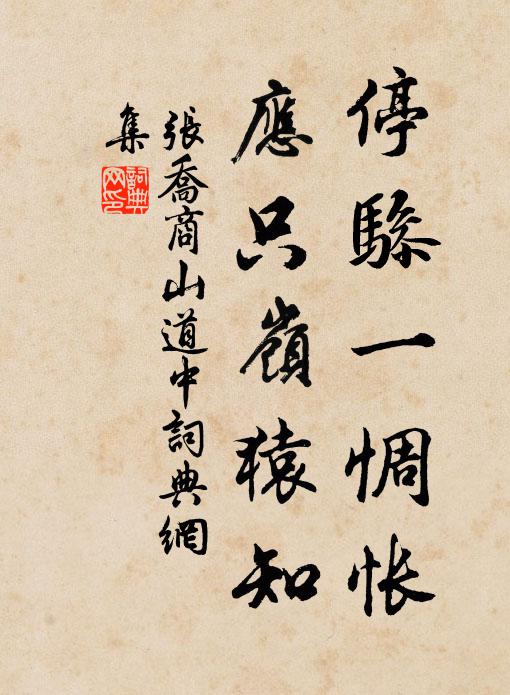 停驂一惆悵
應只嶺猿知
張喬商山道中詞典網
集
詞典
网印